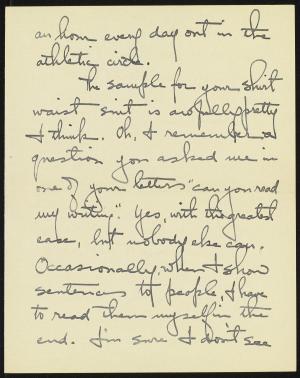 an hour every day out in the
athletic circle.
The sample for your shirt
waist suit is awfully pretty
I think. Oh, I remember a
question you asked me in
one of your letters "can you read
my writing". Yes, with the greatest
ease, but nobody else can.
Occasionally, when I show
sentences to people, I have
to read them myself in the
end. I'm sure I don't see